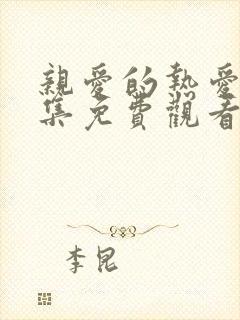 親愛的熱愛
集免費觀看
李昆